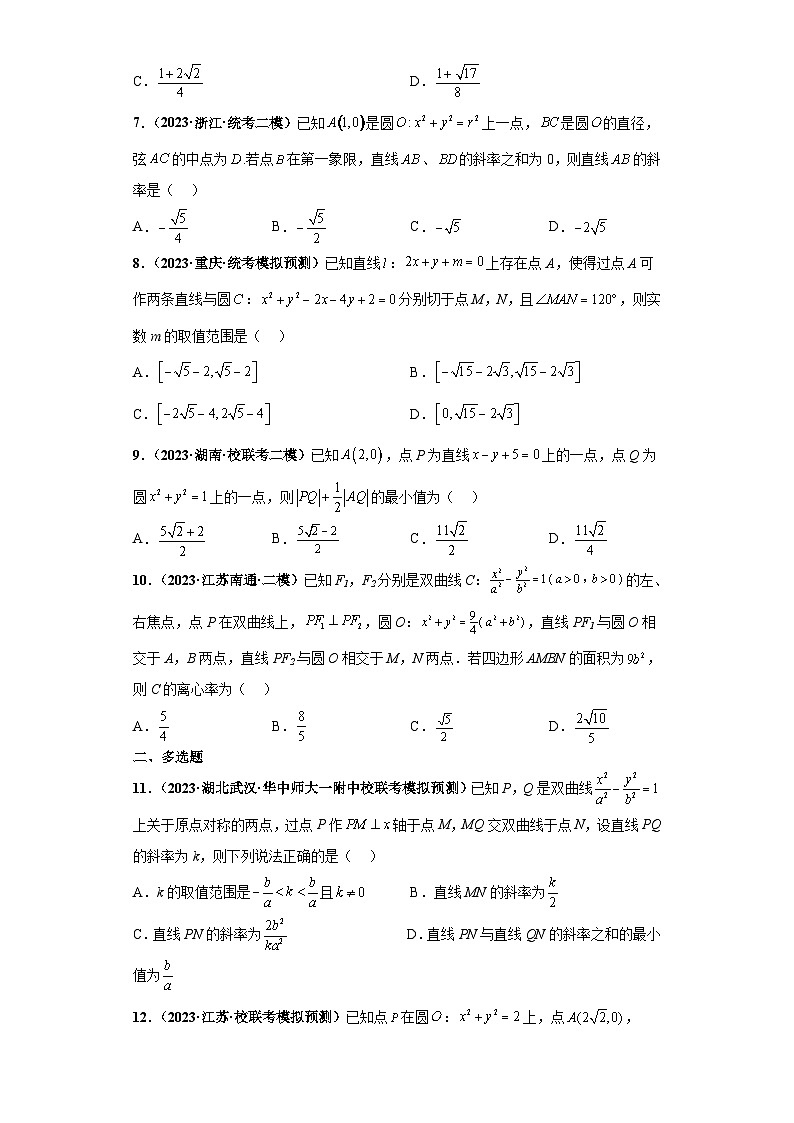 C．$\frac{1+2\sqrt{2}}{4}$ D．$\frac{1+\sqrt{17}}{8}$
7．（2023·浙江·统考二模）已知$A(1,0)$是圆$O: x^2+y^2=r^2$上一点，$BC$是圆$O$的直径，
弦$AC$的中点为$D$.若点$B$在第一象限，直线$AB$、$BD$的斜率之和为 0，则直线$AB$的斜
率是（ ）
A．$-\frac{\sqrt{5}}{4}$ B．$-\frac{\sqrt{5}}{2}$ C．$-\sqrt{5}$ D．$-2\sqrt{5}$
8．（2023·重庆·统考模拟预测）已知直线$l$：$2x+y+m=0$上存在点 A，使得过点 A 可
作两条直线与圆$C$：$x^2+y^2-2x-4y+2=0$分别切于点 M，N，且$\angle MAN=120°$，则实
数 m 的取值范围是（ ）
A．$[-\sqrt{5}-2,\sqrt{5}-2]$ B．$[-\sqrt{15}-2\sqrt{3},\sqrt{15}-2\sqrt{3}]$
C．$[-2\sqrt{5}-4,2\sqrt{5}-4]$ D．$[0,\sqrt{15}-2\sqrt{3}]$
9．（2023·湖南·校联考二模）已知$A(2,0)$，点 P 为直线$x-y+5=0$上的一点，点 Q 为
圆$x^2+y^2=1$上的一点，则$|PQ|+\frac{1}{2}|AQ|$的最小值为（ ）
A．$\frac{5\sqrt{2}+2}{2}$ B．$\frac{5\sqrt{2}-2}{2}$ C．$\frac{11\sqrt{2}}{2}$ D．$\frac{11\sqrt{2}}{4}$
10．（2023·江苏南通·二模）已知 $F_1$，$F_2$分别是双曲线 C：$\frac{x^2}{a^2}-\frac{y^2}{b^2}=1(a>0，b>0)$的左、
右焦点，点 P 在双曲线上，$PF_1\perp PF_2$，圆 O：$x^2+y^2=\frac{9}{4}(a^2+b^2)$，直线 $PF_1$与圆 O 相
交于 A，B 两点，直线 $PF_2$与圆 O 相交于 M，N 两点．若四边形 AMBN 的面积为$9b^2$，
则 C 的离心率为（ ）
A．$\frac{5}{4}$ B．$\frac{8}{5}$ C．$\frac{\sqrt{5}}{2}$ D．$\frac{2\sqrt{10}}{5}$
二、多选题
11．（2023·湖北武汉·华中师大一附中校联考模拟预测）已知 P，Q 是双曲线$\frac{x^2}{a^2}-\frac{y^2}{b^2}=1$
上关于原点对称的两点，过点 P 作$PM\perp x$轴于点 M，MQ 交双曲线于点 N，设直线 PQ
的斜率为 k，则下列说法正确的是（ ）
A．k 的取值范围是$-\frac{b}{a}<k<\frac{b}{a}$且$k\neq 0$ B．直线$MN$的斜率为$\frac{k}{2}$
C．直线 PN 的斜率为$\frac{2b^2}{ka^2}$ D．直线 PN 与直线 QN 的斜率之和的最小
值为$\frac{b}{a}$
12．（2023·江苏·校联考模拟预测）已知点 P 在圆$O$：$x^2+y^2=2$上，点$A(2\sqrt{2},0)$，